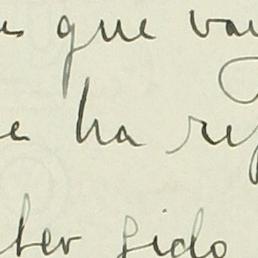 que vay
e ha re
ber sido